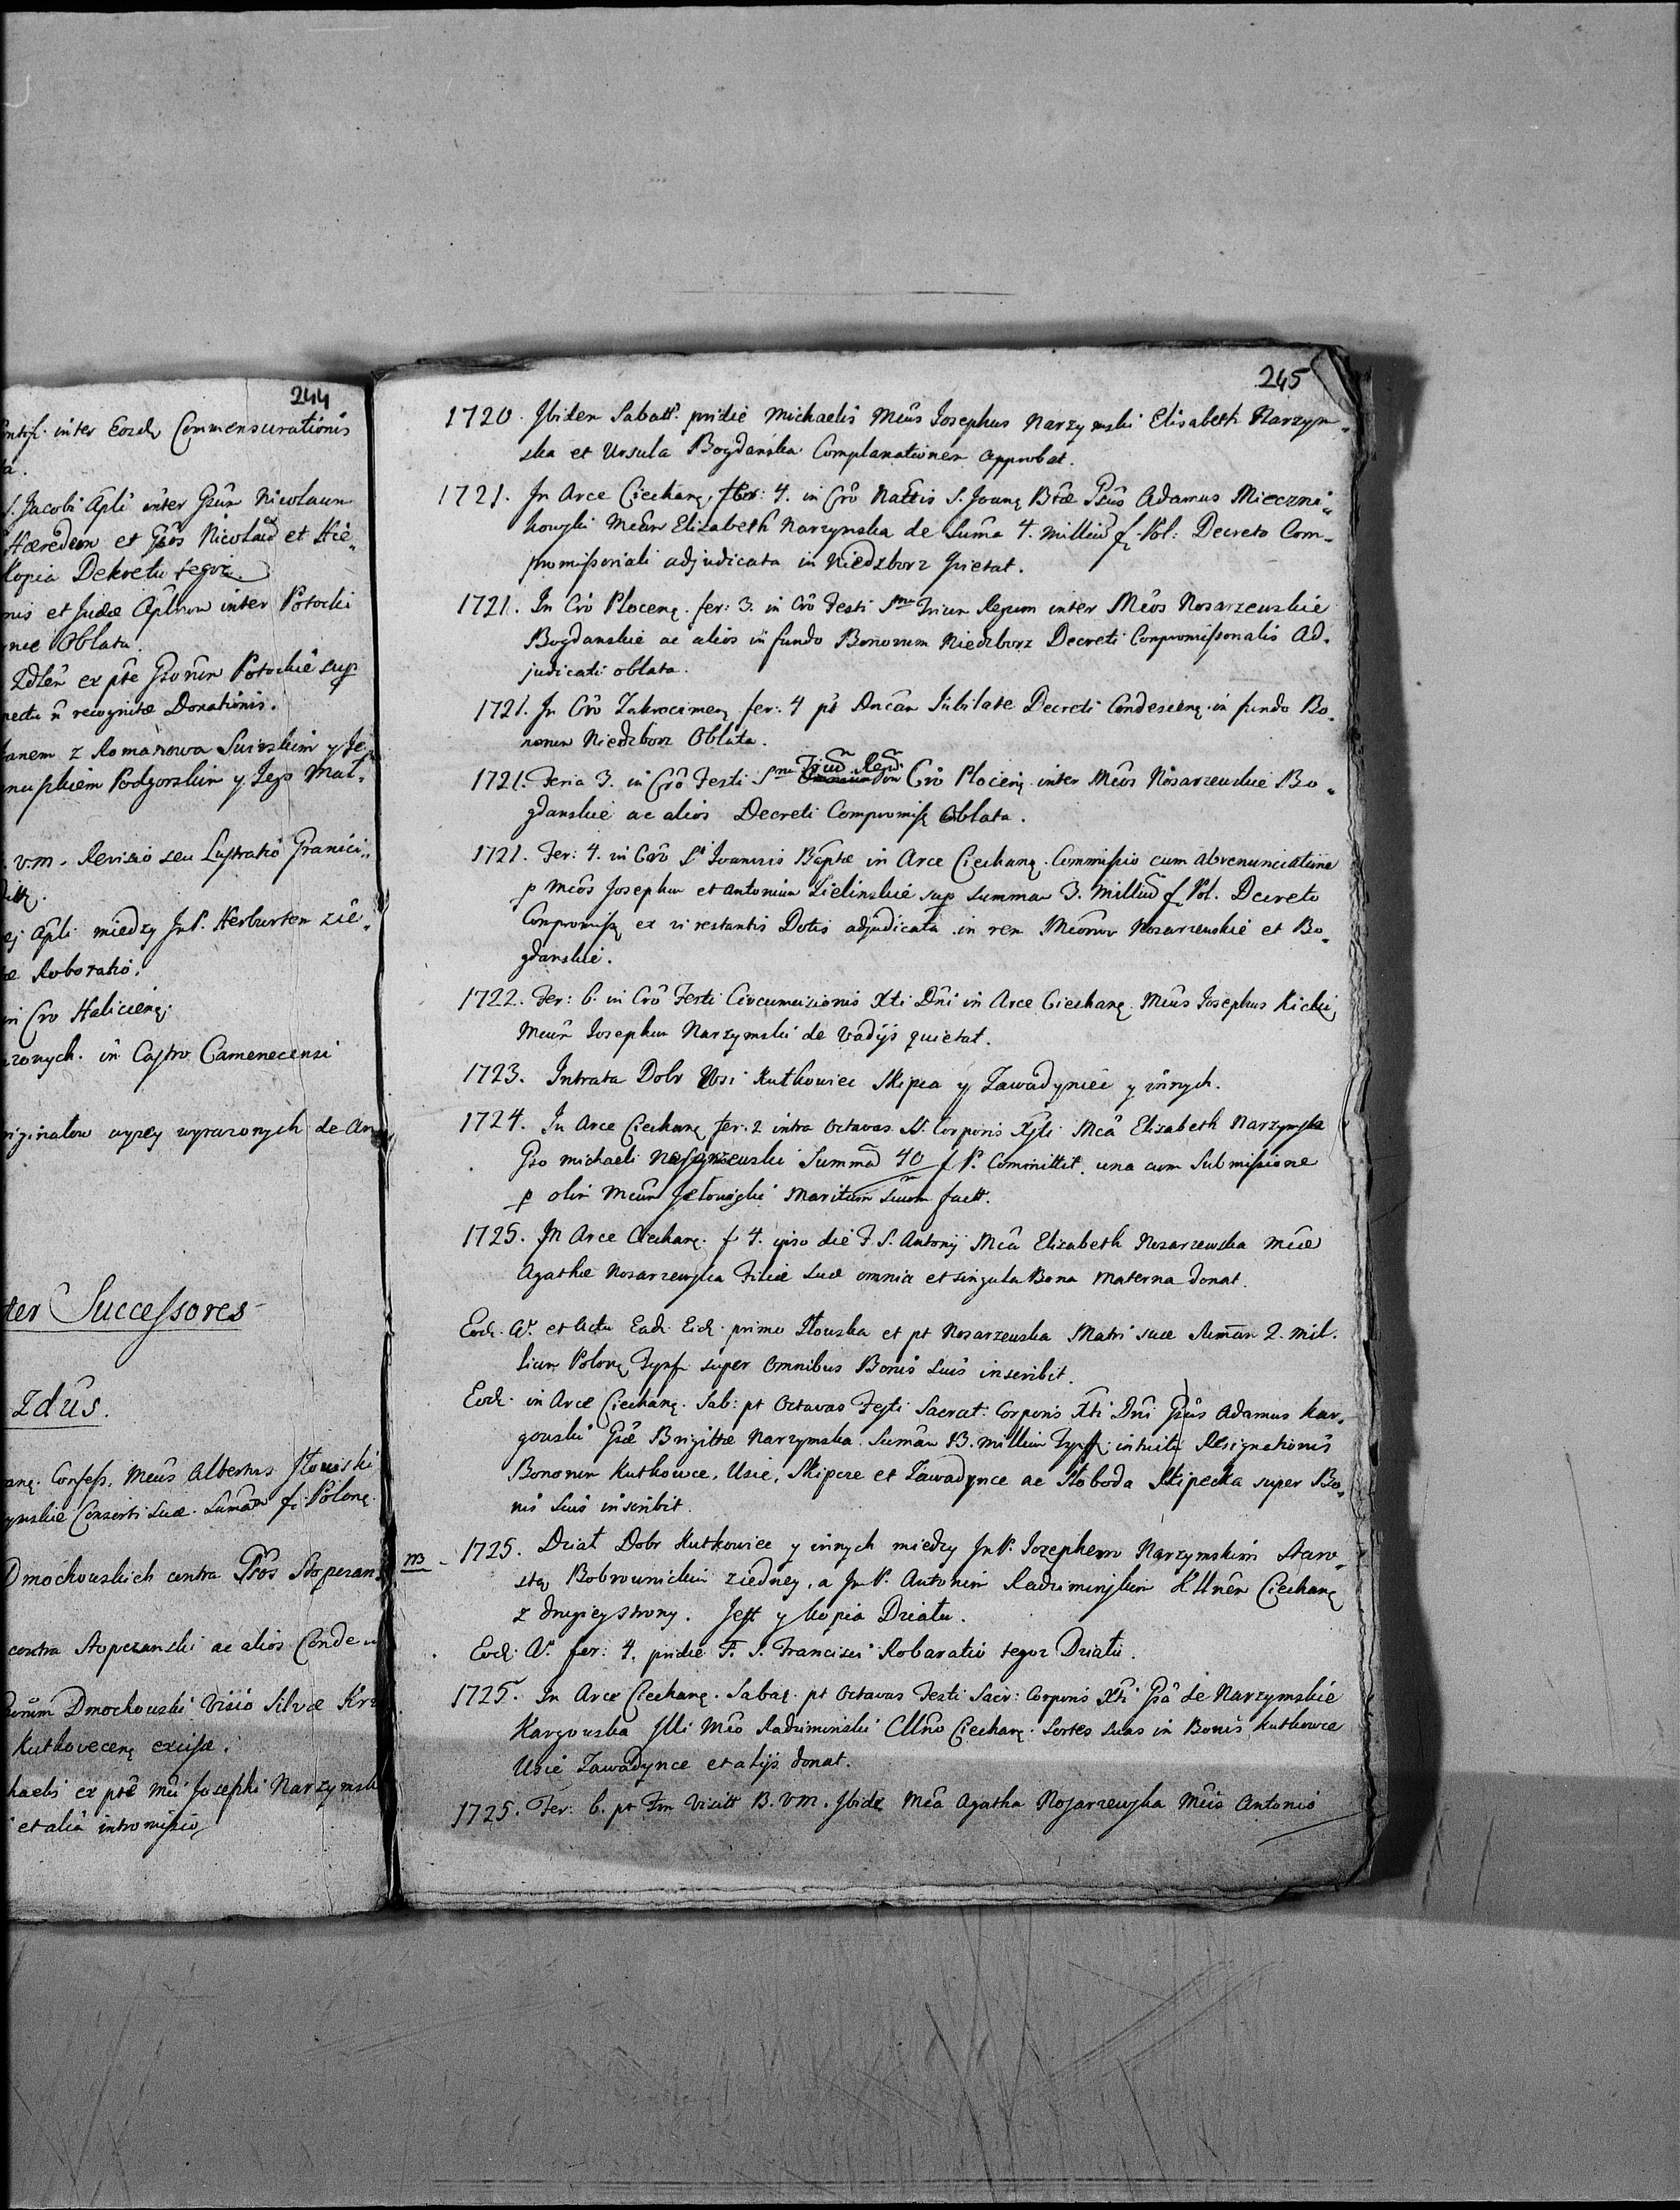 244
inter Eosd Commensurationis
S. Jacobi Apli inter Gsûm Nicolaum
Hæredem et Gsos Nicolaû et Hie„
Kopia Dekretu tegoż
nis et Judæ Aplorum inter Potocki
Oblata.
Zdzêñ ex pte Gsorum Potockie sup
n recognitæ Donationis.
z Romanowa Swirskim y Je„
Podgorskim y Jego Mał„
V.M. Revisio seu Lustratio Granici„
ej Apli miedzy JnP. Herburtem
Roboratio.
in Cro Haliciens
in Castro Camenecensi
wyzey wyrazonych de An
ter Successores
zdûs.
Confess. Mcûs Albertus Słouski
Consorti suæ. Sumam f. Polonę
Dmochowskich contra Psos Stopczan
contra Stopczanski ac alios Conde
Dmochowski Visio Silvæ Krz
Kutkovecenę excisæ.
haelis ex pte Mci Josephi Narzymsk
et alia intromissio
245
1720. Ibidem Sabatt. pridie Michaelis Mcûs Josephus Narzymski Elisabeth Narzym„
ska et Ursula Bogdanska Complanationem approbat.
1721. In Arce Ciechanę, fer: 4. in Crô Nattis S. Joanę Btæ Gsûs Adamus Mieczni„
kowski Mcâm Elizabeth Narzymska de Suma 4. Milliû f. Pol: Decreto Com„
promissoriali adjudicata in Niedzborz quietat.
1721. In Crô Plocenę. fer: 3. in Crô Festi Smo Trium Regum inter Mcos Nosarzewskie
Bogdanskie ac alios in fundo Bonorum Niedzborz Decreti Compromissonalis Ad„
judicati oblata.
1721. In Crô Zakrocimenę fer: 4 pt Dncam Jubilate Decreti Condescenę. in fundo Bo„
norum Niedzborz Oblata.
1721. Feria 3. in Crô Festi Smo Triû Regû Crô Plocenę inter Mcôs Nosarzewskie Bo„
gdanskie ac alios Decreti Compromiss Oblata.
1721. Fer: 4. in Crô Sti Joannis Baptæ in Arce Ciechanę. Commissio cum abrenunciatione
p Mcôs Josephum et Antonium Zielinskie sup Summam 3. Milliû f. Pol. Decreto
Compromiss ex vi restantis Dotis adjudicata in rem Mcôrum Nosarzewskie et Bo„
gdanskie.
1722. Fer: 6. in Crô Festi Circumcizionis Xti Dni in Arce Ciechanę. Mcûs Josephus Kicki
Mcûm Josephum Narzymski de Vadÿs quietat.
1723. Intrata Dobr Wsi Kutkowiec Skipca y Zawadyniec y innych.
1724. In Arce Ciechanę fer: 2 intra Octavas SS. Corporis Xsti Mcâ Elizabeth Narzymska
Gso Michaeli Nosarzewski Summâ 40/m f P. Committit una cum Submissione
p olim Mcûm Maritum suum factt.
1725. In Arce Ciechanę. f 4. ipso die F. S. Antonÿ Mcâ Elizabeth Nosarzewska Mcæ
Agathæ Nosarzewska Filiæ suæ omnia et singula Bona Materna donat.
Eod. Aº. et Actu Ead. Eid. primo Słouska et pt Nosarzewska Matri suæ Sumam 2. mil„
lium Polonę Tynf super Omnibus Bonis suis inscribit.
Eod. in Arce Ciechanę. Sab: pt Octavas Festi Sacrat: Corporis Xti Dni Gsûs Adamus Kar„
gouski Gsæ Brigittæ Narzymska. Sumam 13. millium Tynff. intuitu Resignationis
Bonorum Kutkowce, Usie, Skipcze et Zawadynce ac Słoboda Skipecka super Bo„
nis suis inscribit.
m 1725. Dział Dobr Kutkowiec y innych miedzy JnP. Jozephem Narzymskim Staro„
stą Bobrownickim z iedney, a JnP. Antonim Radziminskim Kllnêm Ciechanę
z drugiey strony. Jest y Kopia Działu.
Eod. Aº. fer: 4. pridie F. S. Francisci Roboratio tegoz Działu.
1725. In Arce Ciechanę. Sabat. pt Octavas Festi Sacr: Corporis Xti Gsâ de Narzymskie
Kargouska Illi Mco Radziminski Cllno Ciechanę. Sortes suas in Bonis Kutkowce
Usie Zawadynce et alÿs donat.
1725. Fer: 6. pt Fm Visitt B.V.M. Ibid. Mcâ Agatha Nosarzewska Mcis Antonio